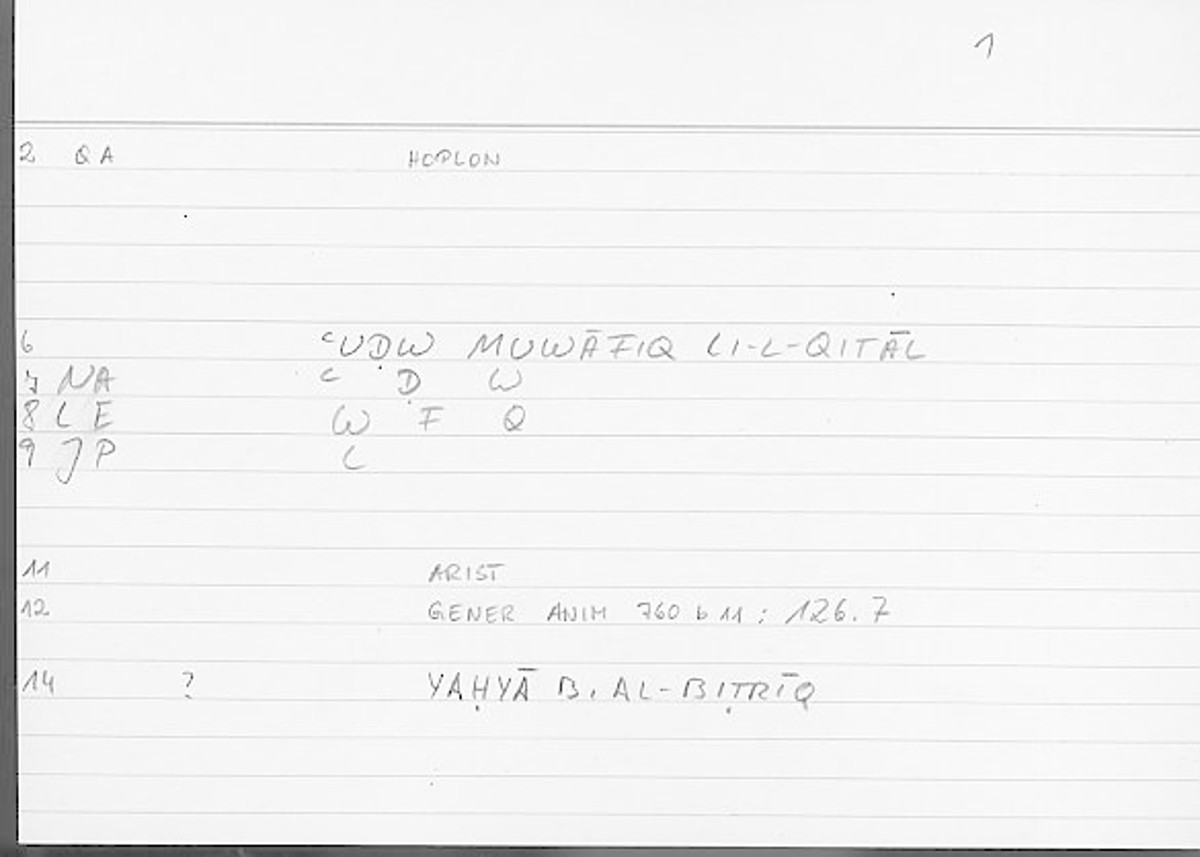 1
2 QA HOPLON
6 ʿUḌW MUWĀFIQ LI-L-QITĀL
7 NA ʿ Ḍ W
8 L E W F Q
9 J P L
11 ARIST
12 GENER ANIM 760 b 11 : 126.7
14 ? YAḤYĀ B. AL-BIṬRĪQ